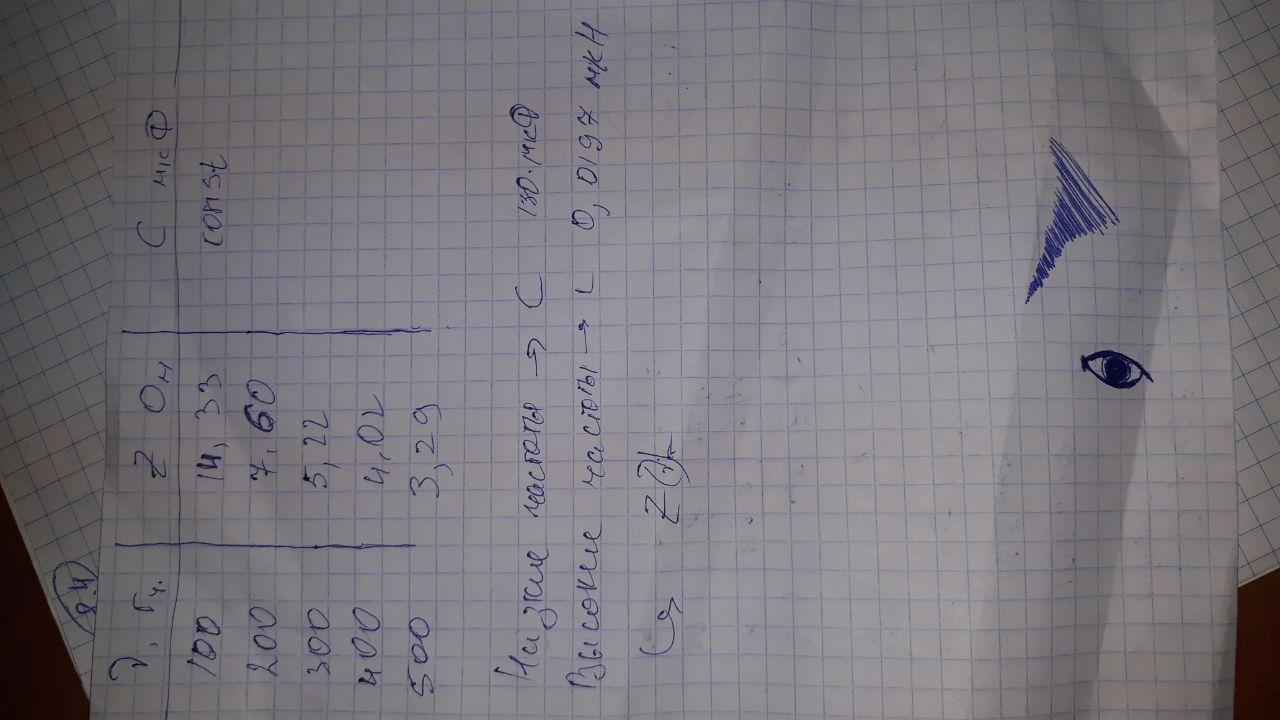 8.4
ν, Гц. Z Ом C мкФ
100 14,33 const
200 7.60
300 5,22
400 4,02
500 3,29
Низкие частоты → C 130 мкФ
Высокие частоты → L 0,0197 мкН
↳ Z